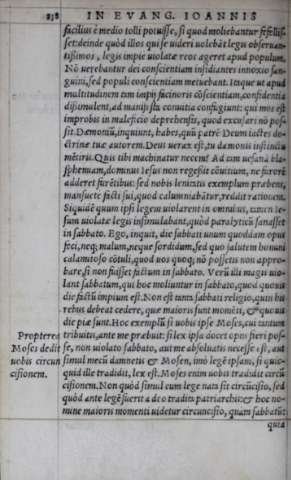 238 IN EVANG. IOANNIS
facilius è medio tolli potuisse, si quod moliebantur fefellis
set: deinde quòd illos qui se uideri uolebãt legis obseruan-
tissimos, legis impiæ uiolatæ reos ageret apud populum.
Nõ uerebantur dei conscientiam insidiantes innoxio san-
guini, sed populi conscientiam metuebant. Itaque ut apud
multitudinem tam impij facinoris cõscientiam, confidentia
dissimulent, ad manifesta conuitia confugiunt: qui mos est
improbis in maleficio deprehensis, quod excusari nõ pos-
sit. Dæmoniũ, inquiunt, habes, qui patrẽ Deum iactes do-
ctrinæ tuæ autorem. Deus uerax est, tu dæmonis instinctu
mẽtiris. Quis tibi machinatur necem? Ad tam uesanã bla-
sphemiam, dominus Iesus non regessit cõuitium, ne furorẽ
adderet furẽtibus: sed nobis lenitatis exemplum præbens,
mansuete facti sui, quod calumniabãtur, reddit rationem.
Siquidẽ quum ipsi legem uiolarent in omnibus, tamen le-
gem uiolatæ legis insimulabant, quòd paralyticũ sanasset
in sabbato. Ego, inquit, die sabbati unum quoddam opus
feci, neq; malum, neque sordidum, sed quo salutem homini
calamitoso cõtuli, quod uos quoq; nõ possetis non appro-
bare, si non fuisset factum in sabbato. Verũ illi magis uio-
lant sabbatum, qui hoc moliuntur in sabbato, quod quouis
die factu impium est. Non est tanta sabbati religio, quin li-
ceat
rebus debeat cedere, quæ maioris sunt momẽti, & quouis
die piæ sunt. Hoc exemplũ si uobis ipse Moses, cui tantum
Propterea tribuitis, ante me præbuit: si lex ipsa docet opus fieri pos-
Moses dedit se, non uiolato sabbato, aut me absoluatis necesse est, aut
uobis circun simul mecũ damnetis & Mosen, imò legẽ ipsam, si quic-
cisionem. quid ille tradidit, lex est. Moses enim uobis tradidit circũ
cisionem. Non quòd simul cum lege nata sit circũcisio, sed
quòd ante legẽ fuerit a deo tradita patriarchis: & hoc no-
mine maioris momenti uidetur circuncisio, quàm sabbatũ:
quia